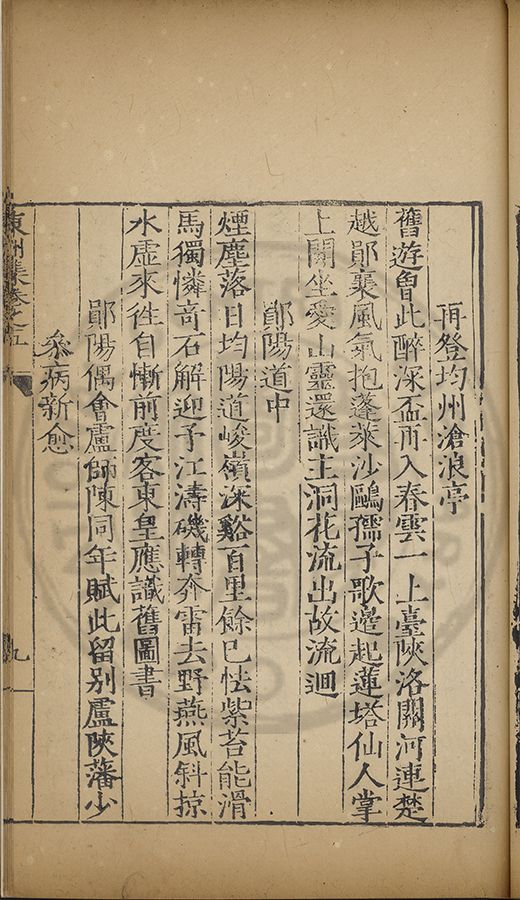 再登均州滄浪亭
舊遊曾此醉深盃再入春雲一上臺陝洛關河連楚
越鄖襄風氣抱蓬萊沙鷗孺子歌邊起蓮塔仙人掌
上開坐愛山靈還識主洞花流出故流迴
鄖陽道中
煙塵落日均陽道峻嶺深谿百里餘已怯紫苔能滑
馬獨憐奇石解迎予江濤磯轉奔雷去野燕風斜掠
水虛來往自慚前度客東皇應識舊圖書
鄖陽偶會盧師陳同年賦此留別盧陝藩少
叅病新愈
東州集卷之五
九